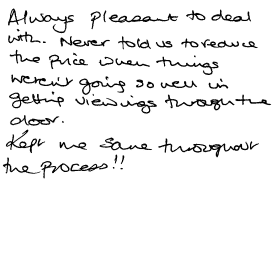 Always pleasant to deal
with. Never told us to reduce
the price when things
weren't going so well in
getting viewings through the
door.
Kept me sane throughout
the process!!